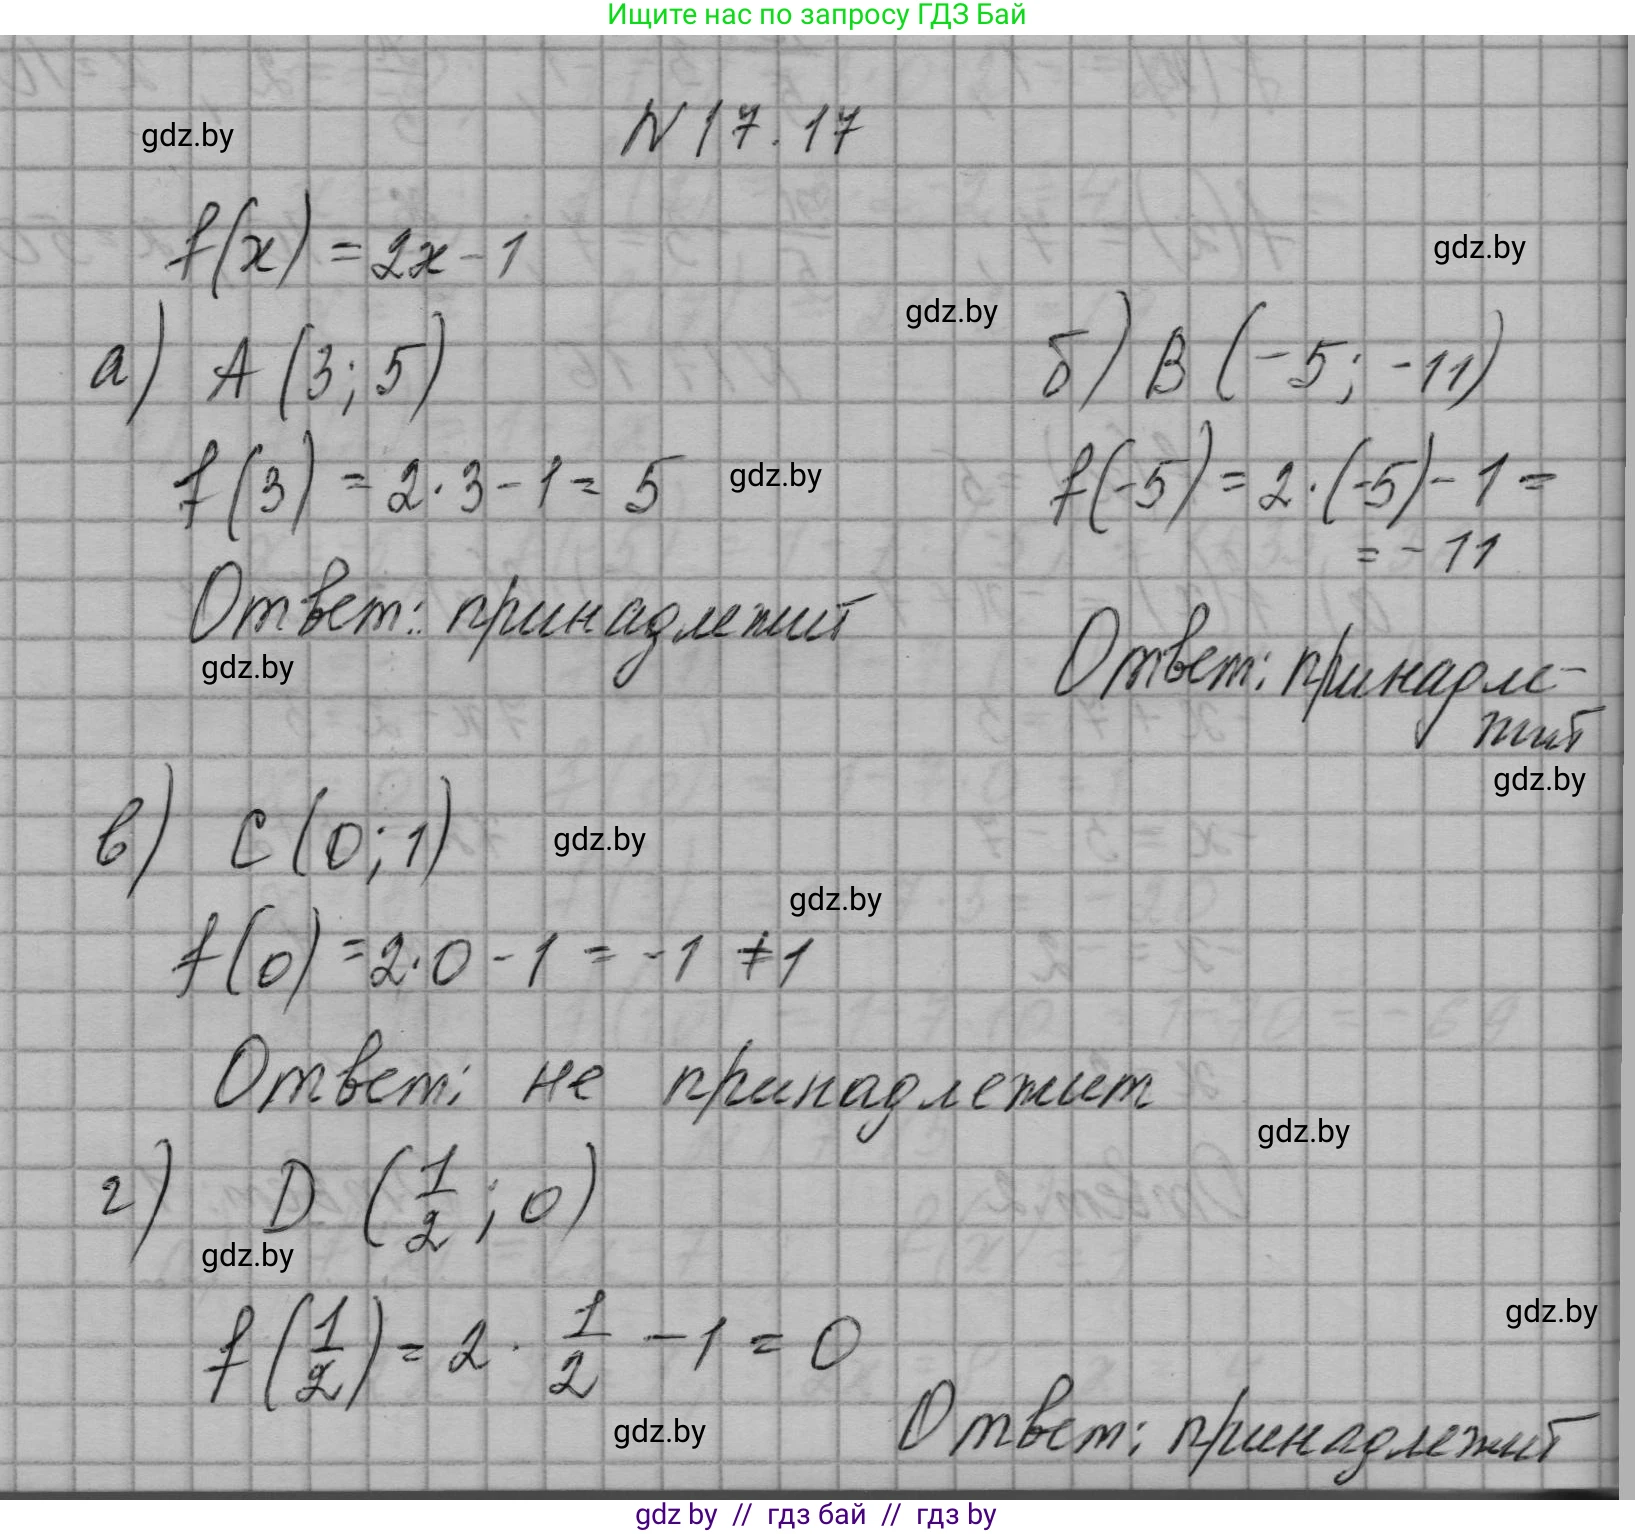 Ищите нас по запросу ГДЗ Бай
gdz.by
N 17.17
f(x) = 2x - 1
gdz.by
gdz.by
а) A (3; 5)
б) B (-5; -11)
f(3) = 2·3 - 1 = 5
gdz.by
f(-5) = 2·(-5) - 1 =
= -11
Ответ: принадлежит
gdz.by
Ответ: принадле-
жит
gdz.by
в) C (0; 1)
gdz.by
gdz.by
f(0) = 2·0 - 1 = -1 ≠ 1
Ответ: не принадлежит
gdz.by
г) D (1/2; 0)
gdz.by
f(1/2) = 2 · 1/2 - 1 = 0
gdz.by
gdz.by
Ответ: принадлежит
gdz by // гдз бай // гдз by